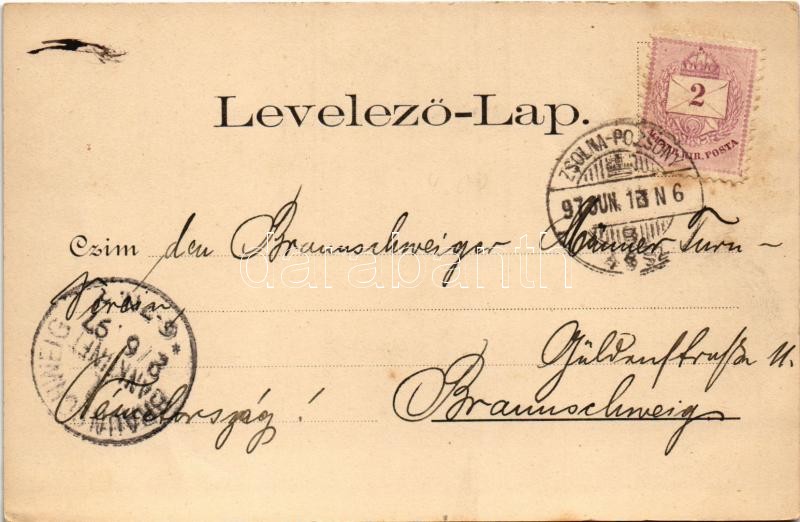 Levelező-Lap.
2
MAGY. KIR. POSTA
ZSOLNA-POZSONY
97 JUN. 13 N 6
Czim den Braunschweiger Männer Turn-
Verein
Güldenstraße 11.
Németország! Braunschweig
BRAUNSCHWEIG
darabanth